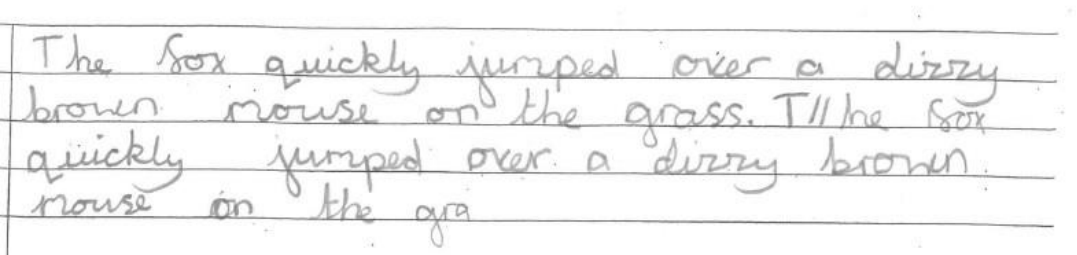 The fox quickly jumped over a dizzy
brown mouse on the grass. T//he fox
quickly jumped over a dizzy brown.
mouse on the gra